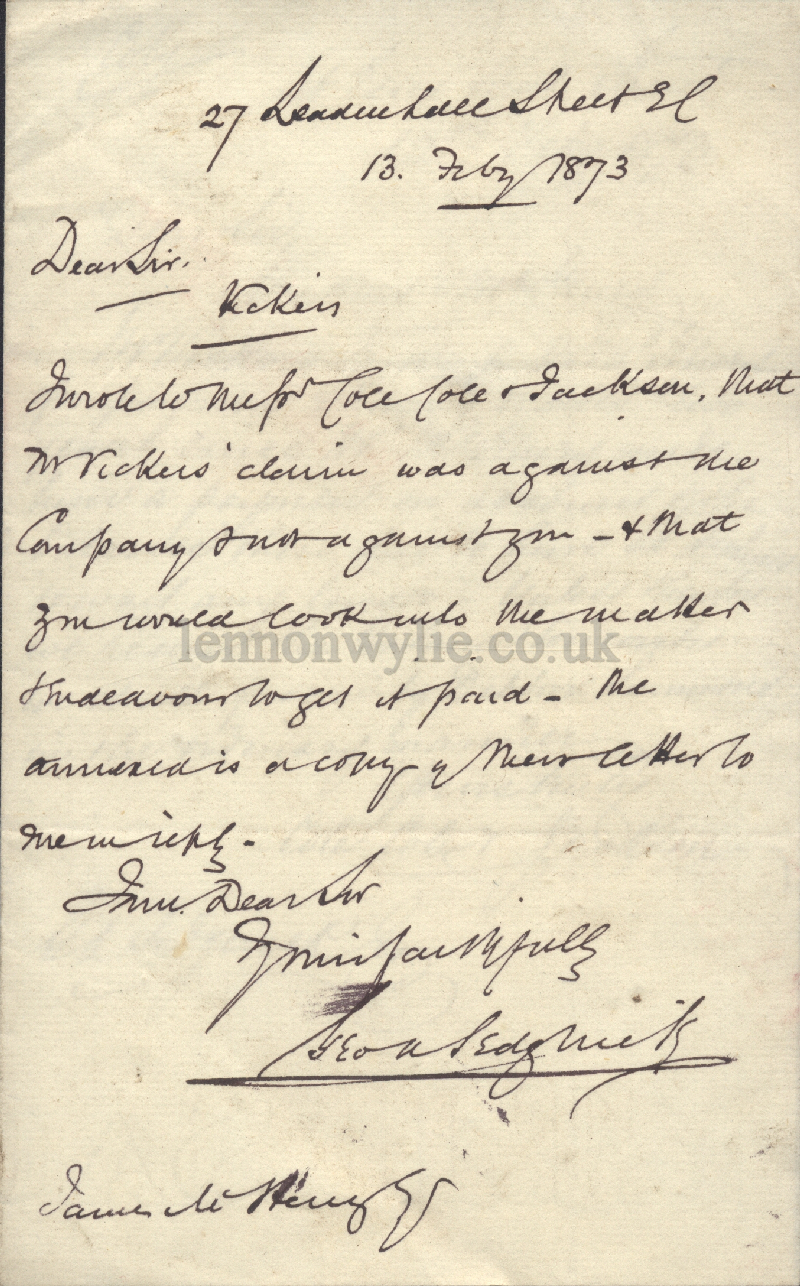 27 Leadenhall Street EC
13. Feby 1873
Dear Sir.
Vickers
I wrote to Messrs Cole Cole & Jackson, that
Mr Vickers' claim was against the
Company & not against you - & that
you would look into the matter
lennonwylie.co.uk
& endeavour to get it paid - The
annexed is a copy of their letter to
me in reply -
I am. Dear Sir
Yours faithfully
Geo R Sedgwick
James McHenry Esq